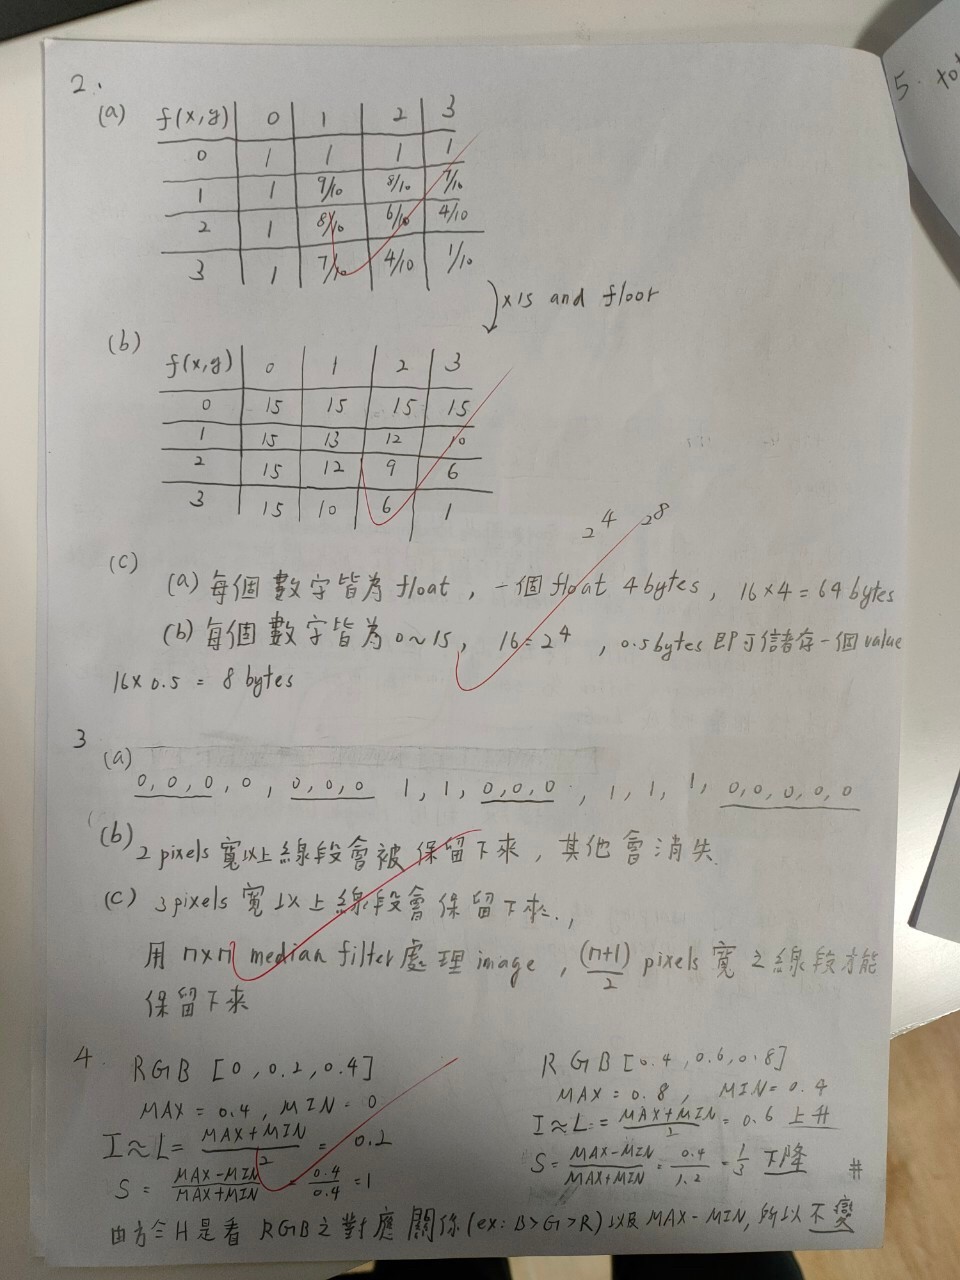 2.
(a)
f(x,y) 0 1 2 3
0 1 1 1 1
1 1 9/10 8/10 7/10
2 1 8/10 6/10 4/10
3 1 7/10 4/10 1/10
×15 and floor
(b)
f(x,y) 0 1 2 3
0 15 15 15 15
1 15 13 12 10
2 15 12 9 6
3 15 10 6 1
2^4 2^8
(c)
(a) 每個數字皆為 float , 一個 float 4 bytes , 16×4 = 64 bytes
(b) 每個數字皆為 0~15 , 16 = 2^4 , 0.5 bytes 即可儲存一個 value
16×0.5 = 8 bytes
3
(a)
0, 0, 0, 0, 0, 0, 0 1, 1, 0, 0, 0, 1, 1, 1, 0, 0, 0, 0, 0
(b) 2 pixels 寬以上線段會被保留下來, 其他會消失
(c) 3 pixels 寬以上線段會保留下來.,
用 n×n median filter 處理 image , (n+1)/2 pixels 寬之線段才能
保留下來
4.
RGB [0, 0.2, 0.4]
MAX = 0.4, MIN = 0
I≈L = (MAX+MIN)/2 = 0.2
S = (MAX-MIN)/(MAX+MIN) = 0.4/0.4 = 1
RGB [0.4, 0.6, 0.8]
MAX = 0.8, MIN = 0.4
I≈L = = (MAX+MIN)/2 = 0.6 上升
S = (MAX-MIN)/(MAX+MIN) = 0.4/1.2 = 1/3 下降 #
由方 H 是看 RGB 之對應關係 (ex: B>G>R) 以及 MAX-MIN, 所以不變
5. tot